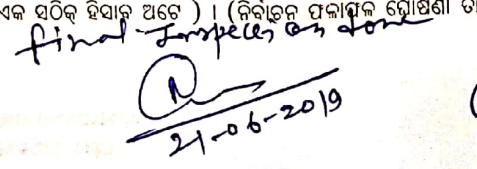 ଏକ ସଠିକ୍ ହିସାବ ଅଟେ ) । (ନିର୍ବାଚନ ଫଳାଫଳ ଘୋଷଣା
final Inspection done
21-06-2019
(